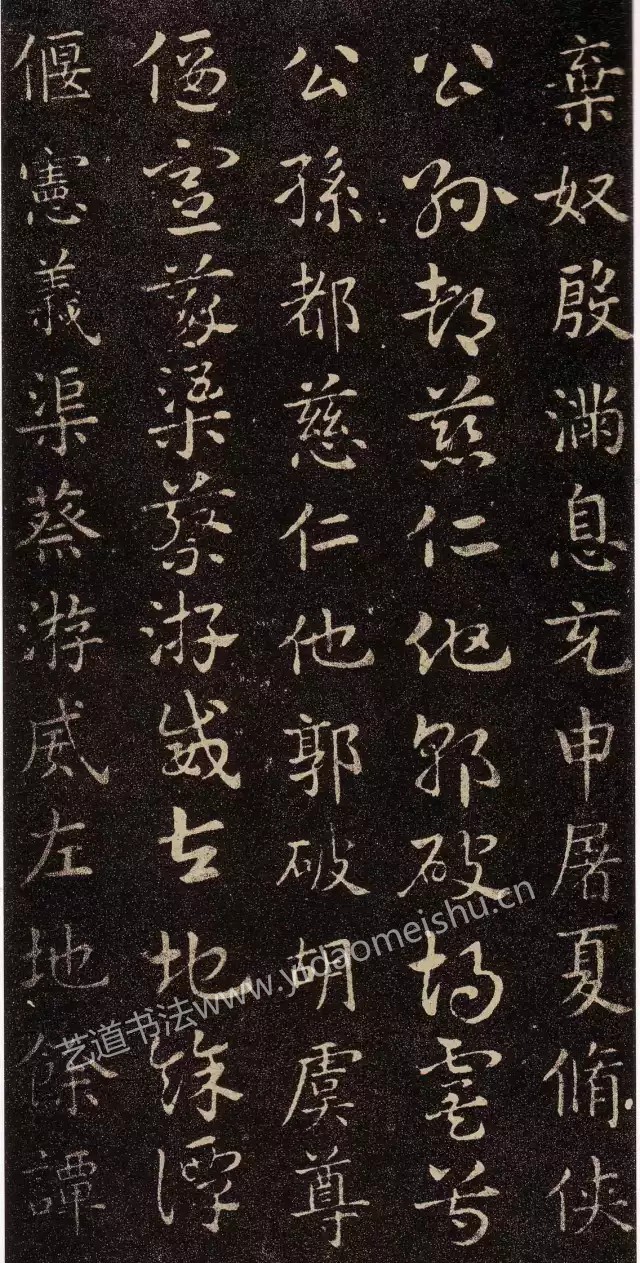 棄奴殷滿息充申屠夏脩俠
公孫都慈仁他郭破胡虞尊
公孫都慈仁他郭破胡虞尊
偃憲義渠蔡游威左地餘譚
偃憲義渠蔡游威左地餘譚
艺道书法www.yidaomeishu.cn